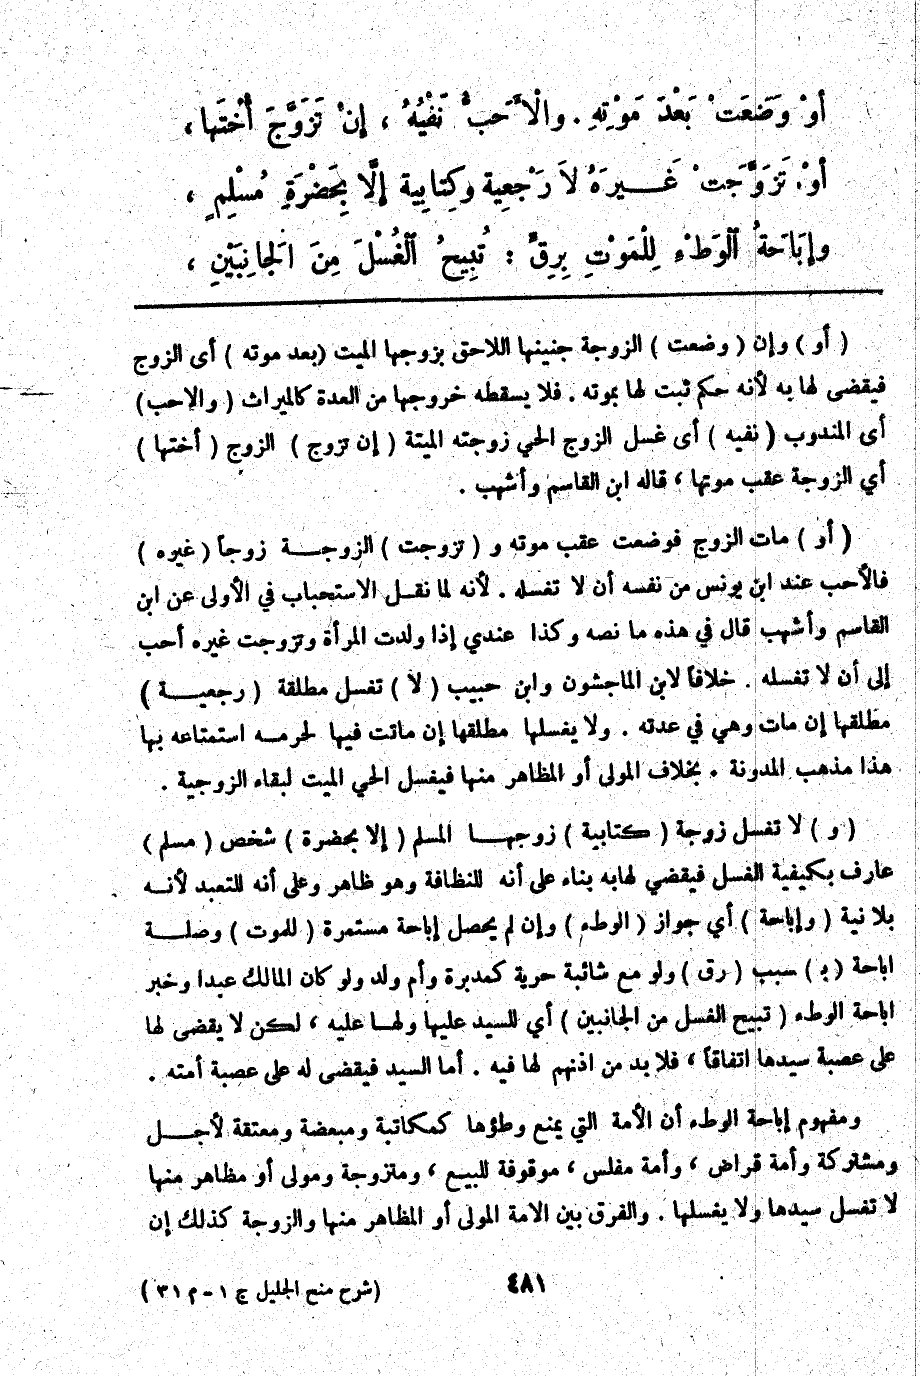 أَوْ وَضَعَتْ بَعْدَ مَوْتِهِ . والْأَحَبُّ نَفْيُهُ ، إِنْ تَزَوَّجَ أُخْتَها ،
أَوْ تَزَوَّجَتْ غَـيرَهُ لاَ رَجْعِية وكِتابِية إِلَّا بِحَضْرَةِ مُسْلِمٍ ،
وإِبَاحَةُ ٱلْوَطْءِ لِلْمَوْتِ بِرِقٍّ : تُبِيحُ ٱلْغُسْلَ مِنَ الْجانِبَيْنِ ،
( أو ) وإن ( وضعت ) الزوجة جنينها اللاحق بزوجها الميت (بعد موته ) أى الزوج
فيقضى لها به لأنه حكم ثبت لها بموته . فلا يسقطه خروجها من العدة كالميراث ( والاحب)
أى المندوب ( نفيه ) أى غسل الزوج الحي زوجته الميتة ( إن تزوج ) الزوج ( أختها )
أي الزوجة عقب موتها ، قاله ابن القاسم وأشهب .
( أو ) مات الزوج فوضعت عقب موته و ( تزوجت ) الزوجــة زوجاً ( غيره )
فالأحب عند ابن يونس من نفسه أن لا تغسله . لأنه لما نقـل الاستحباب في الأولى عن ابن
القاسم وأشهب قال في هذه ما نصه وكذا عندي إذا ولدت المرأة وتزوجت غيره أحب
إلى أن لا تغسله . خلافاً لابن الماجشون وابن حبيب ( لا ) تغسل مطلقة ( رجعيــة )
مطلقها إن مات وهي في عدته . ولا يغسلها مطلقها إن ماتت فيها لحرمـه استمتاعه بها
هذا مذهب المدونة . بخلاف المولى أو المظاهر منها فيغسل الحي الميت لبقاء الزوجية .
( و ) لا تغسل زوجة ( كتابية ) زوجهـا المسلم ( إلا بحضرة ) شخص ( مسلم )
عارف بكيفية الغسل فيقضي لهابه بناء على أنه للنظافة وهو ظاهر وعلى أنه للتعبد لأنـه
بلا نية ( وإباحة ) أي جواز ( الوطء ) وإن لم يحصل إباحة مستمرة ( للموت ) وصلــة
اباحة ( بـ ) سبب ( رق ) ولو مع شائبة حرية كمدبرة وأم ولد ولو كان المالك عبدا وخبر
اباحة الوطء ( تبيح الغسل من الجانبين ) أي للسيد عليها ولهـا عليه ، لكن لا يقضى لها
على عصبة سيدها اتفاقاً ، فلا بد من اذنهم لها فيه . أما السيد فيقضى له على عصبة أمته .
ومفهوم إباحة الوطء أن الأمة التي يمنع وطؤها كمكاتبة ومبعضة ومعتقة لأجــل
ومشتركة وأمة قراض ، وأمة مفلس ، موقوفة للبيـع ، ومتزوجة ومولى أو مظاهر منها
لا تغسل سيدها ولا يغسلها . والفرق بين الامة المولى أو المظاهر منها والزوجة كذلك إن
٤٨١
(شرح منح الجليل ج ١ - م ٣١ )